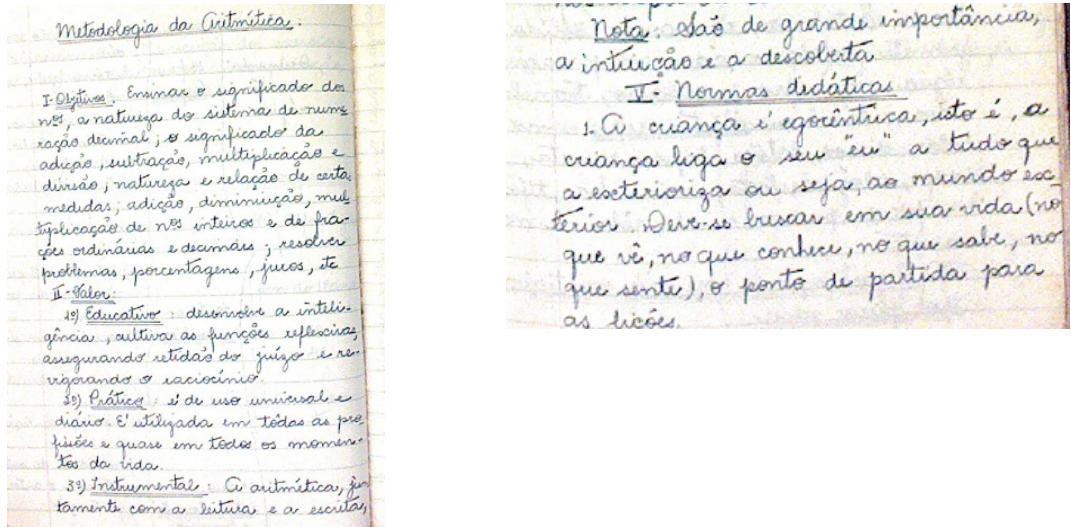 Metodologia da Aritmética:
I- Objetivos: Ensinar o significado dos
nºs, a natureza do sistema de nume
ração decimal; o significado da
adição, subtração, multiplicação e
divisão; natureza e relação de certas
medidas; adição, diminuição, mul
tiplicação de nºs inteiros e de fra-
ções ordinárias e decimais; resolver
problemas, porcentagens, juros, etc
II- Valor:
1º) Educativo: desenvolve a inteli-
gência, cultiva as funções reflexivas,
assegurando retidão do juízo e re-
vigorando o raciocínio.
2º) Prático: é de uso universal e
diário. E' utilizada em tôdas as pro
fissões e quase em todos os momen-
tos da vida.
3º) Instrumental: A aritmética, jun
tamente com a leitura e a escrita,
Nota: São de grande importância,
a intuição e a descoberta
V- Normas didáticas
1. A criança é egocêntrica, isto é, a
criança liga o seu "eu" a tudo que
a exterioriza ou seja, ao mundo ex
terior. Deve-se buscar em sua vida (no
que vê, no que conhece, no que sabe, no
que sente), o ponto de partida para
as lições.